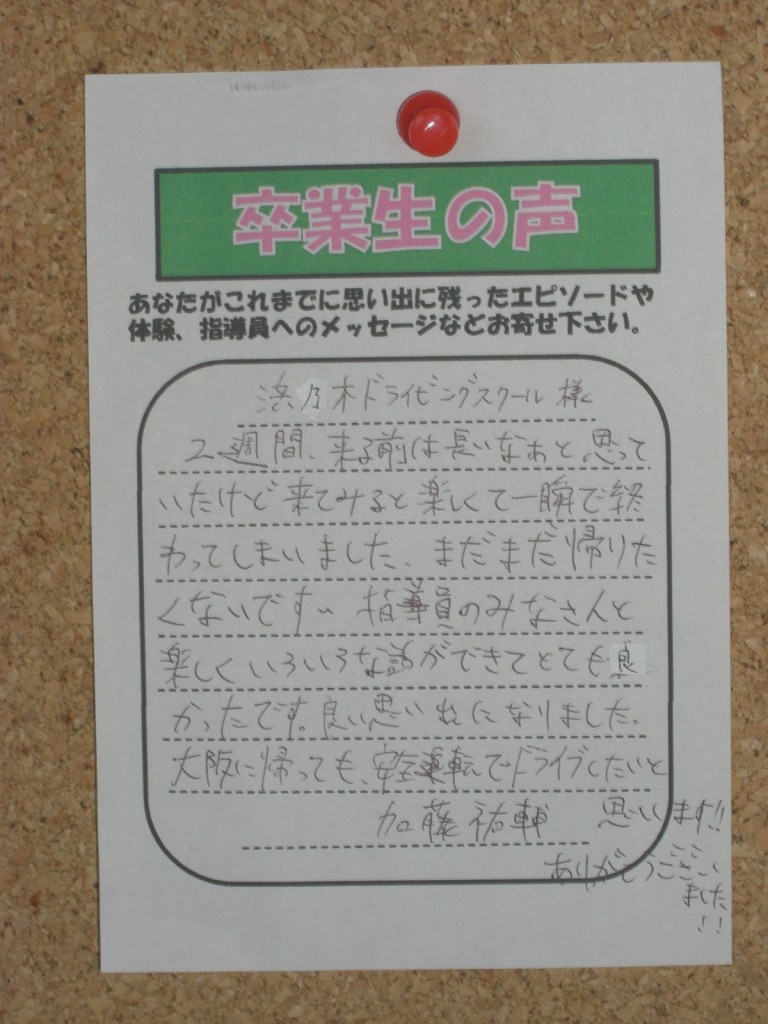 卒業生の声
あなたがこれまでに思い出に残ったエピソードや
体験、指導員へのメッセージなどお寄せ下さい。
浜乃木ドライビングスクール 様
2週間、来る前は長いなぁと思って
いたけど来てみると楽しくて一瞬で終
わってしまいました、まだまだ帰りた
くないです〜 指導員のみなさんと
楽しくいろいろな話ができてとても良
かったです。良い思い出になりました。
大阪に帰っても、安全運転でドライブしたいと
思います!!
加藤祐輔
ありがとうござい
ました
!!